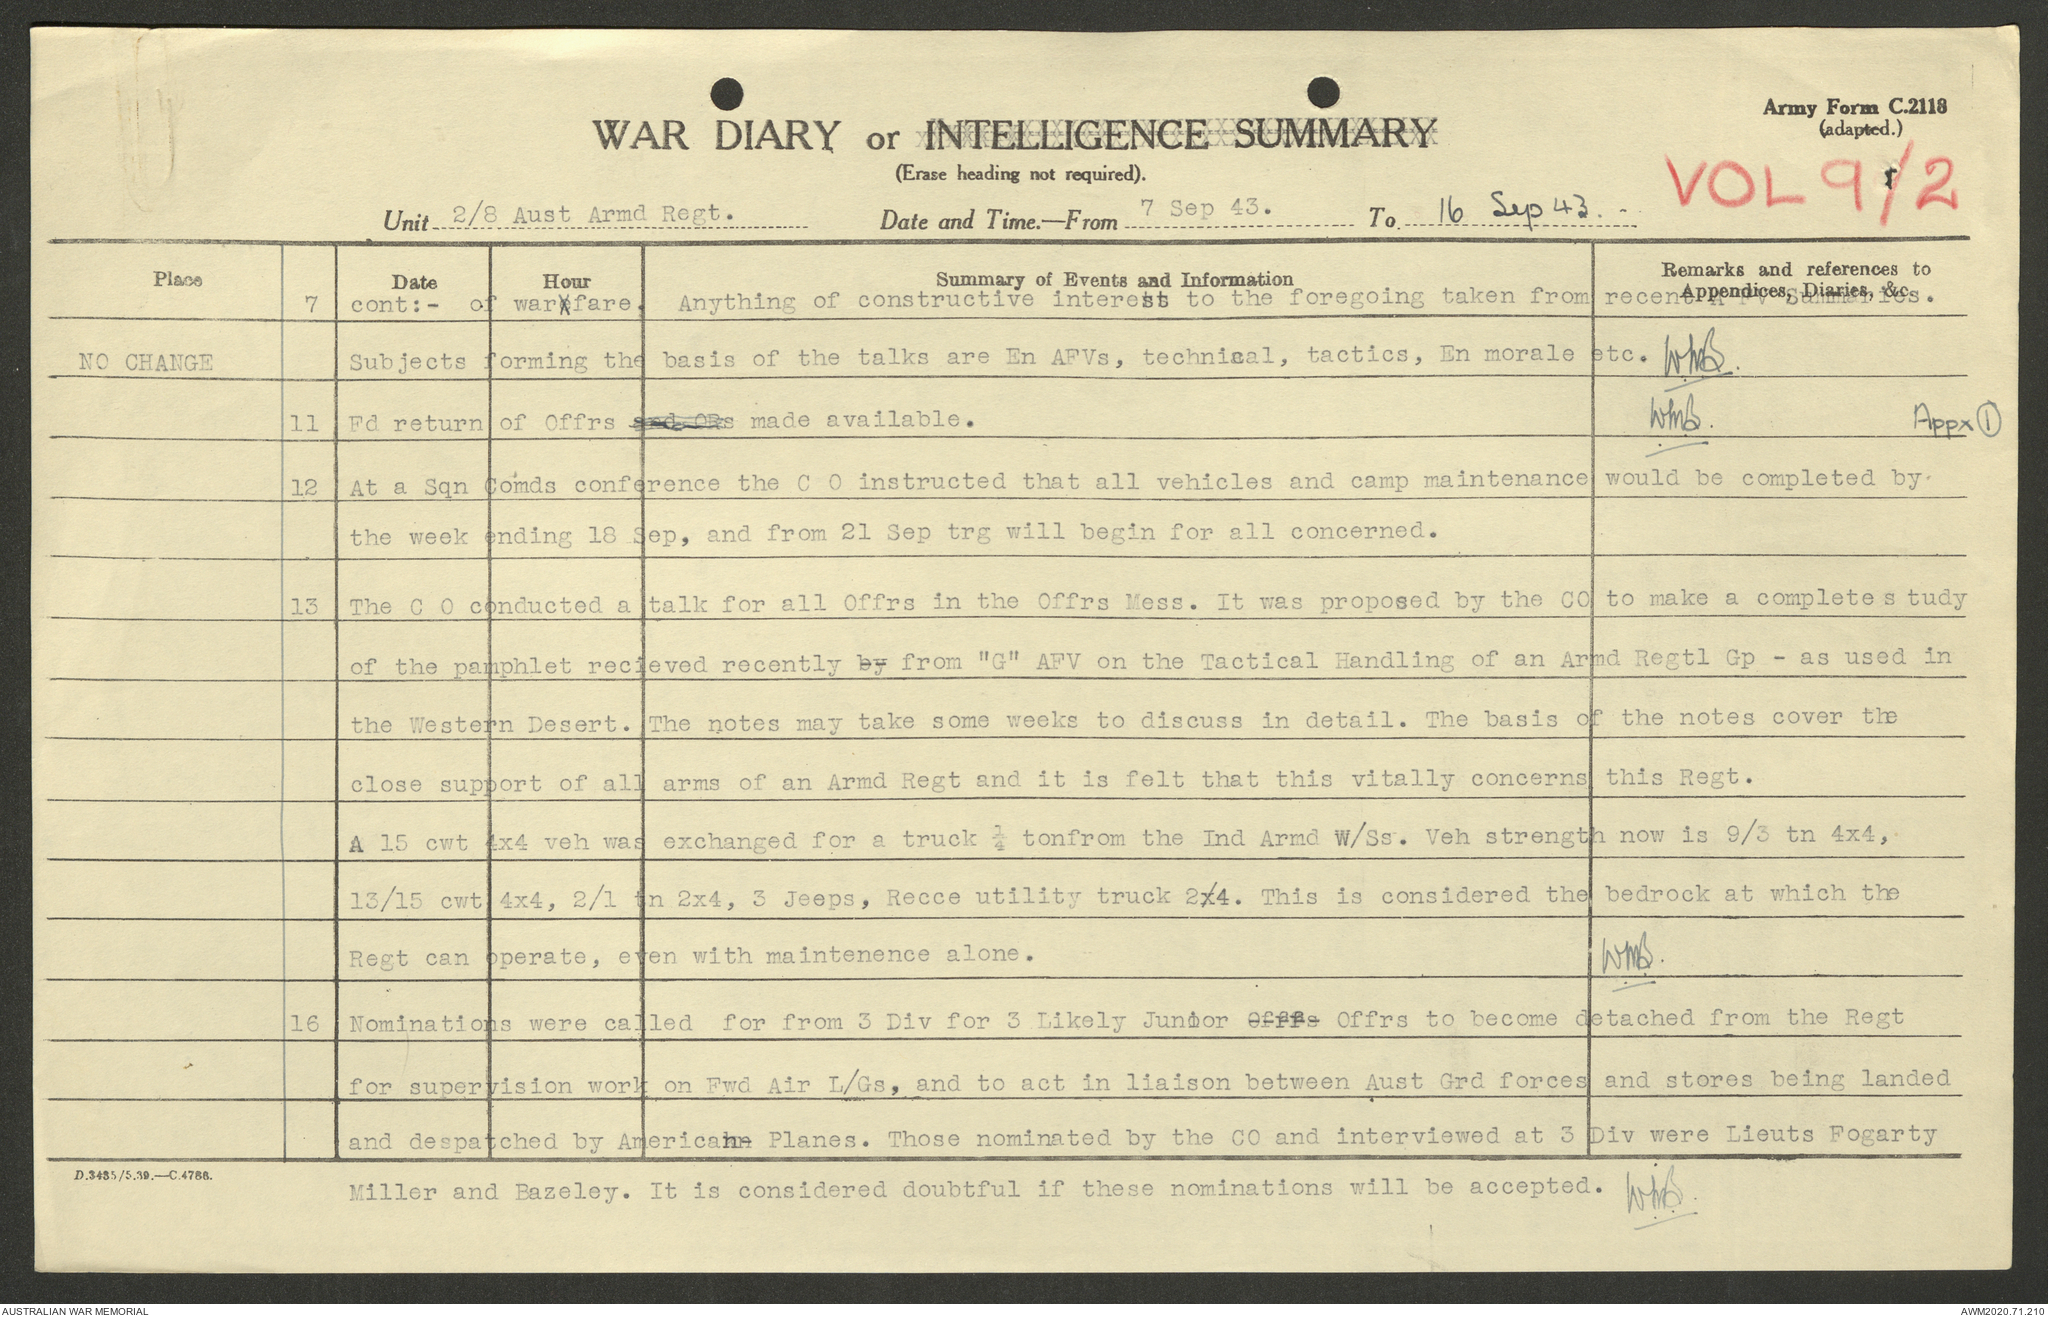 Army Form C.2118
(adapted.)
WAR DIARY or INTELLIGENCE SUMMARY
(Erase heading not required).
VOL 9/2
Unit 2/8 Aust Armd Regt. Date and Time.—From 7 Sep 43. To 16 Sep 43.
Place Date Hour Summary of Events and Information Remarks and references to Appendices, Diaries, &c.
7 cont:- of warfare. Anything of constructive interest to the foregoing taken from recent A FV Summaries.
NO CHANGE Subjects forming the basis of the talks are En AFVs, technical, tactics, En morale etc. WMB.
11 Fd return of Offrs and ORs made available. WMB. Appx 1
12 At a Sqn Comds conference the C O instructed that all vehicles and camp maintenance would be completed by
the week ending 18 Sep, and from 21 Sep trg will begin for all concerned.
13 The C O conducted a talk for all Offrs in the Offrs Mess. It was proposed by the CO to make a complete s tudy
of the pamphlet recieved recently by from "G" AFV on the Tactical Handling of an Armd Regtl Gp - as used in
the Western Desert. The notes may take some weeks to discuss in detail. The basis of the notes cover the
close support of all arms of an Armd Regt and it is felt that this vitally concerns this Regt.
A 15 cwt 4x4 veh was exchanged for a truck ¼ tonfrom the Ind Armd W/Ss. Veh strength now is 9/3 tn 4x4,
13/15 cwt 4x4, 2/1 tn 2x4, 3 Jeeps, Recce utility truck 2x4. This is considered the bedrock at which the
Regt can operate, even with maintenence alone. WMB.
16 Nominations were called for from 3 Div for 3 Likely Junior Offrs Offrs to become detached from the Regt
for supervision work on Fwd Air L/Gs, and to act in liaison between Aust Grd forces and stores being landed
and despatched by American Planes. Those nominated by the CO and interviewed at 3 Div were Lieuts Fogarty
D.3435/5.39.—C.4788.
Miller and Bazeley. It is considered doubtful if these nominations will be accepted. WMB.
AUSTRALIAN WAR MEMORIAL
AWM2020.71.210